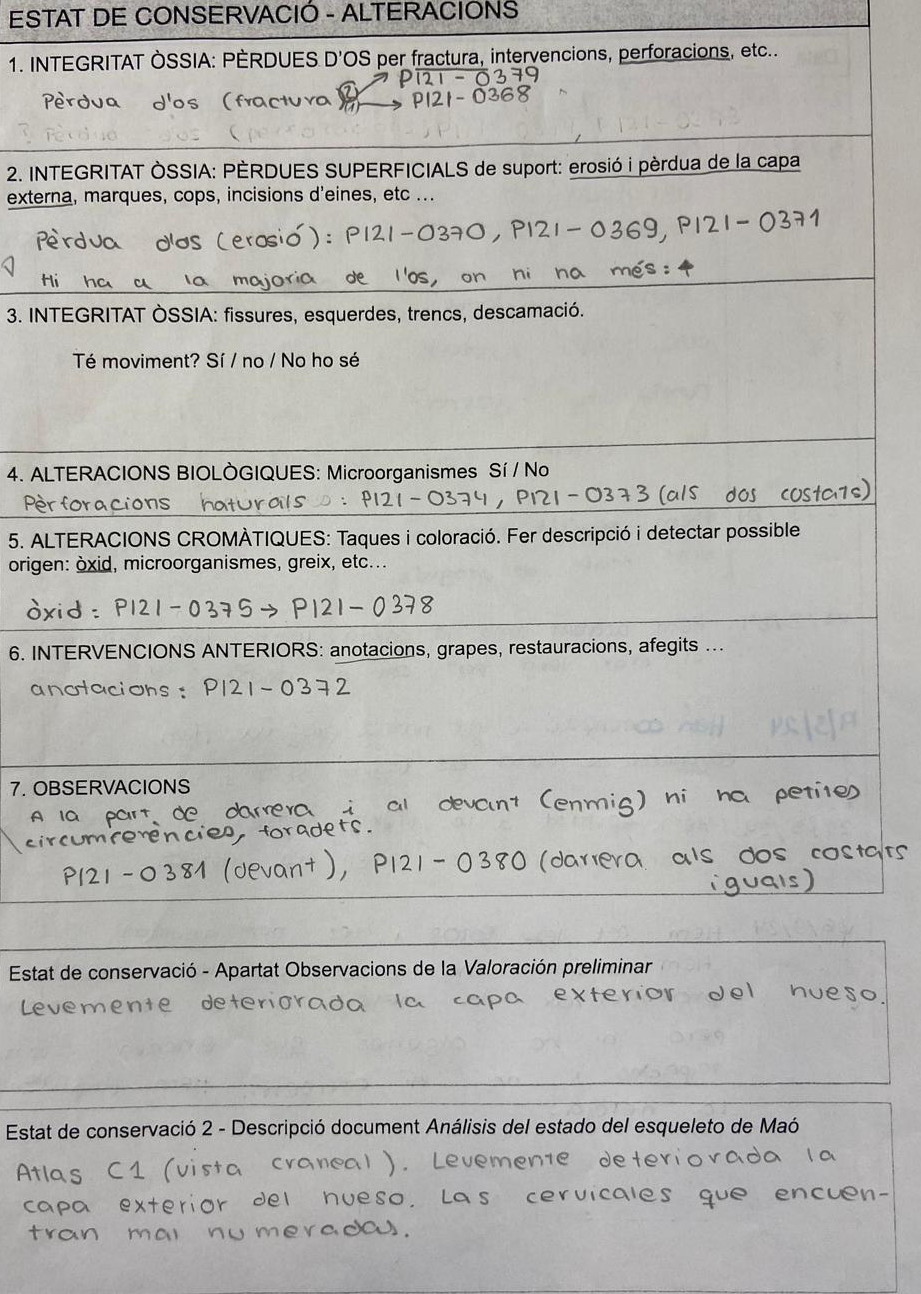 ESTAT DE CONSERVACIÓ - ALTERACIONS
1. INTEGRITAT ÒSSIA: PÈRDUES D'OS per fractura, intervencions, perforacions, etc..
P121-0379
Pèrdua d'os (fractura) → P121-0368
2. INTEGRITAT ÒSSIA: PÈRDUES SUPERFICIALS de suport: erosió i pèrdua de la capa
externa, marques, cops, incisions d'eines, etc ...
Pèrdua d'os (erosió): P121-0370, P121-0369, P121-0371
Hi ha a la majoria de l'os, on ni na més: ↑
3. INTEGRITAT ÒSSIA: fissures, esquerdes, trencs, descamació.
Té moviment? Sí / no / No ho sé
4. ALTERACIONS BIOLÒGIQUES: Microorganismes Sí / No
Pèrforacions naturals: P121-0374, P121-0373 (als dos costats)
5. ALTERACIONS CROMÀTIQUES: Taques i coloració. Fer descripció i detectar possible
origen: òxid, microorganismes, greix, etc...
òxid: P121-0375 → P121-0378
6. INTERVENCIONS ANTERIORS: anotacions, grapes, restauracions, afegits ...
anotacions: P121-0372
7. OBSERVACIONS
A la part de darrera i al devant (enmig) ni ha petites
circumferències, foradets.
P121-0381 (devant), P121-0380 (darrera als dos costats
iguals)
Estat de conservació - Apartat Observacions de la Valoración preliminar
Levemente deteriorada la capa exterior del hueso.
Estat de conservació 2 - Descripció document Análisis del estado del esqueleto de Maó
Atlas C1 (vista craneal). Levemente deteriorada la
capa exterior del hueso. Las cervicales que encuen-
tran mal numeradas.